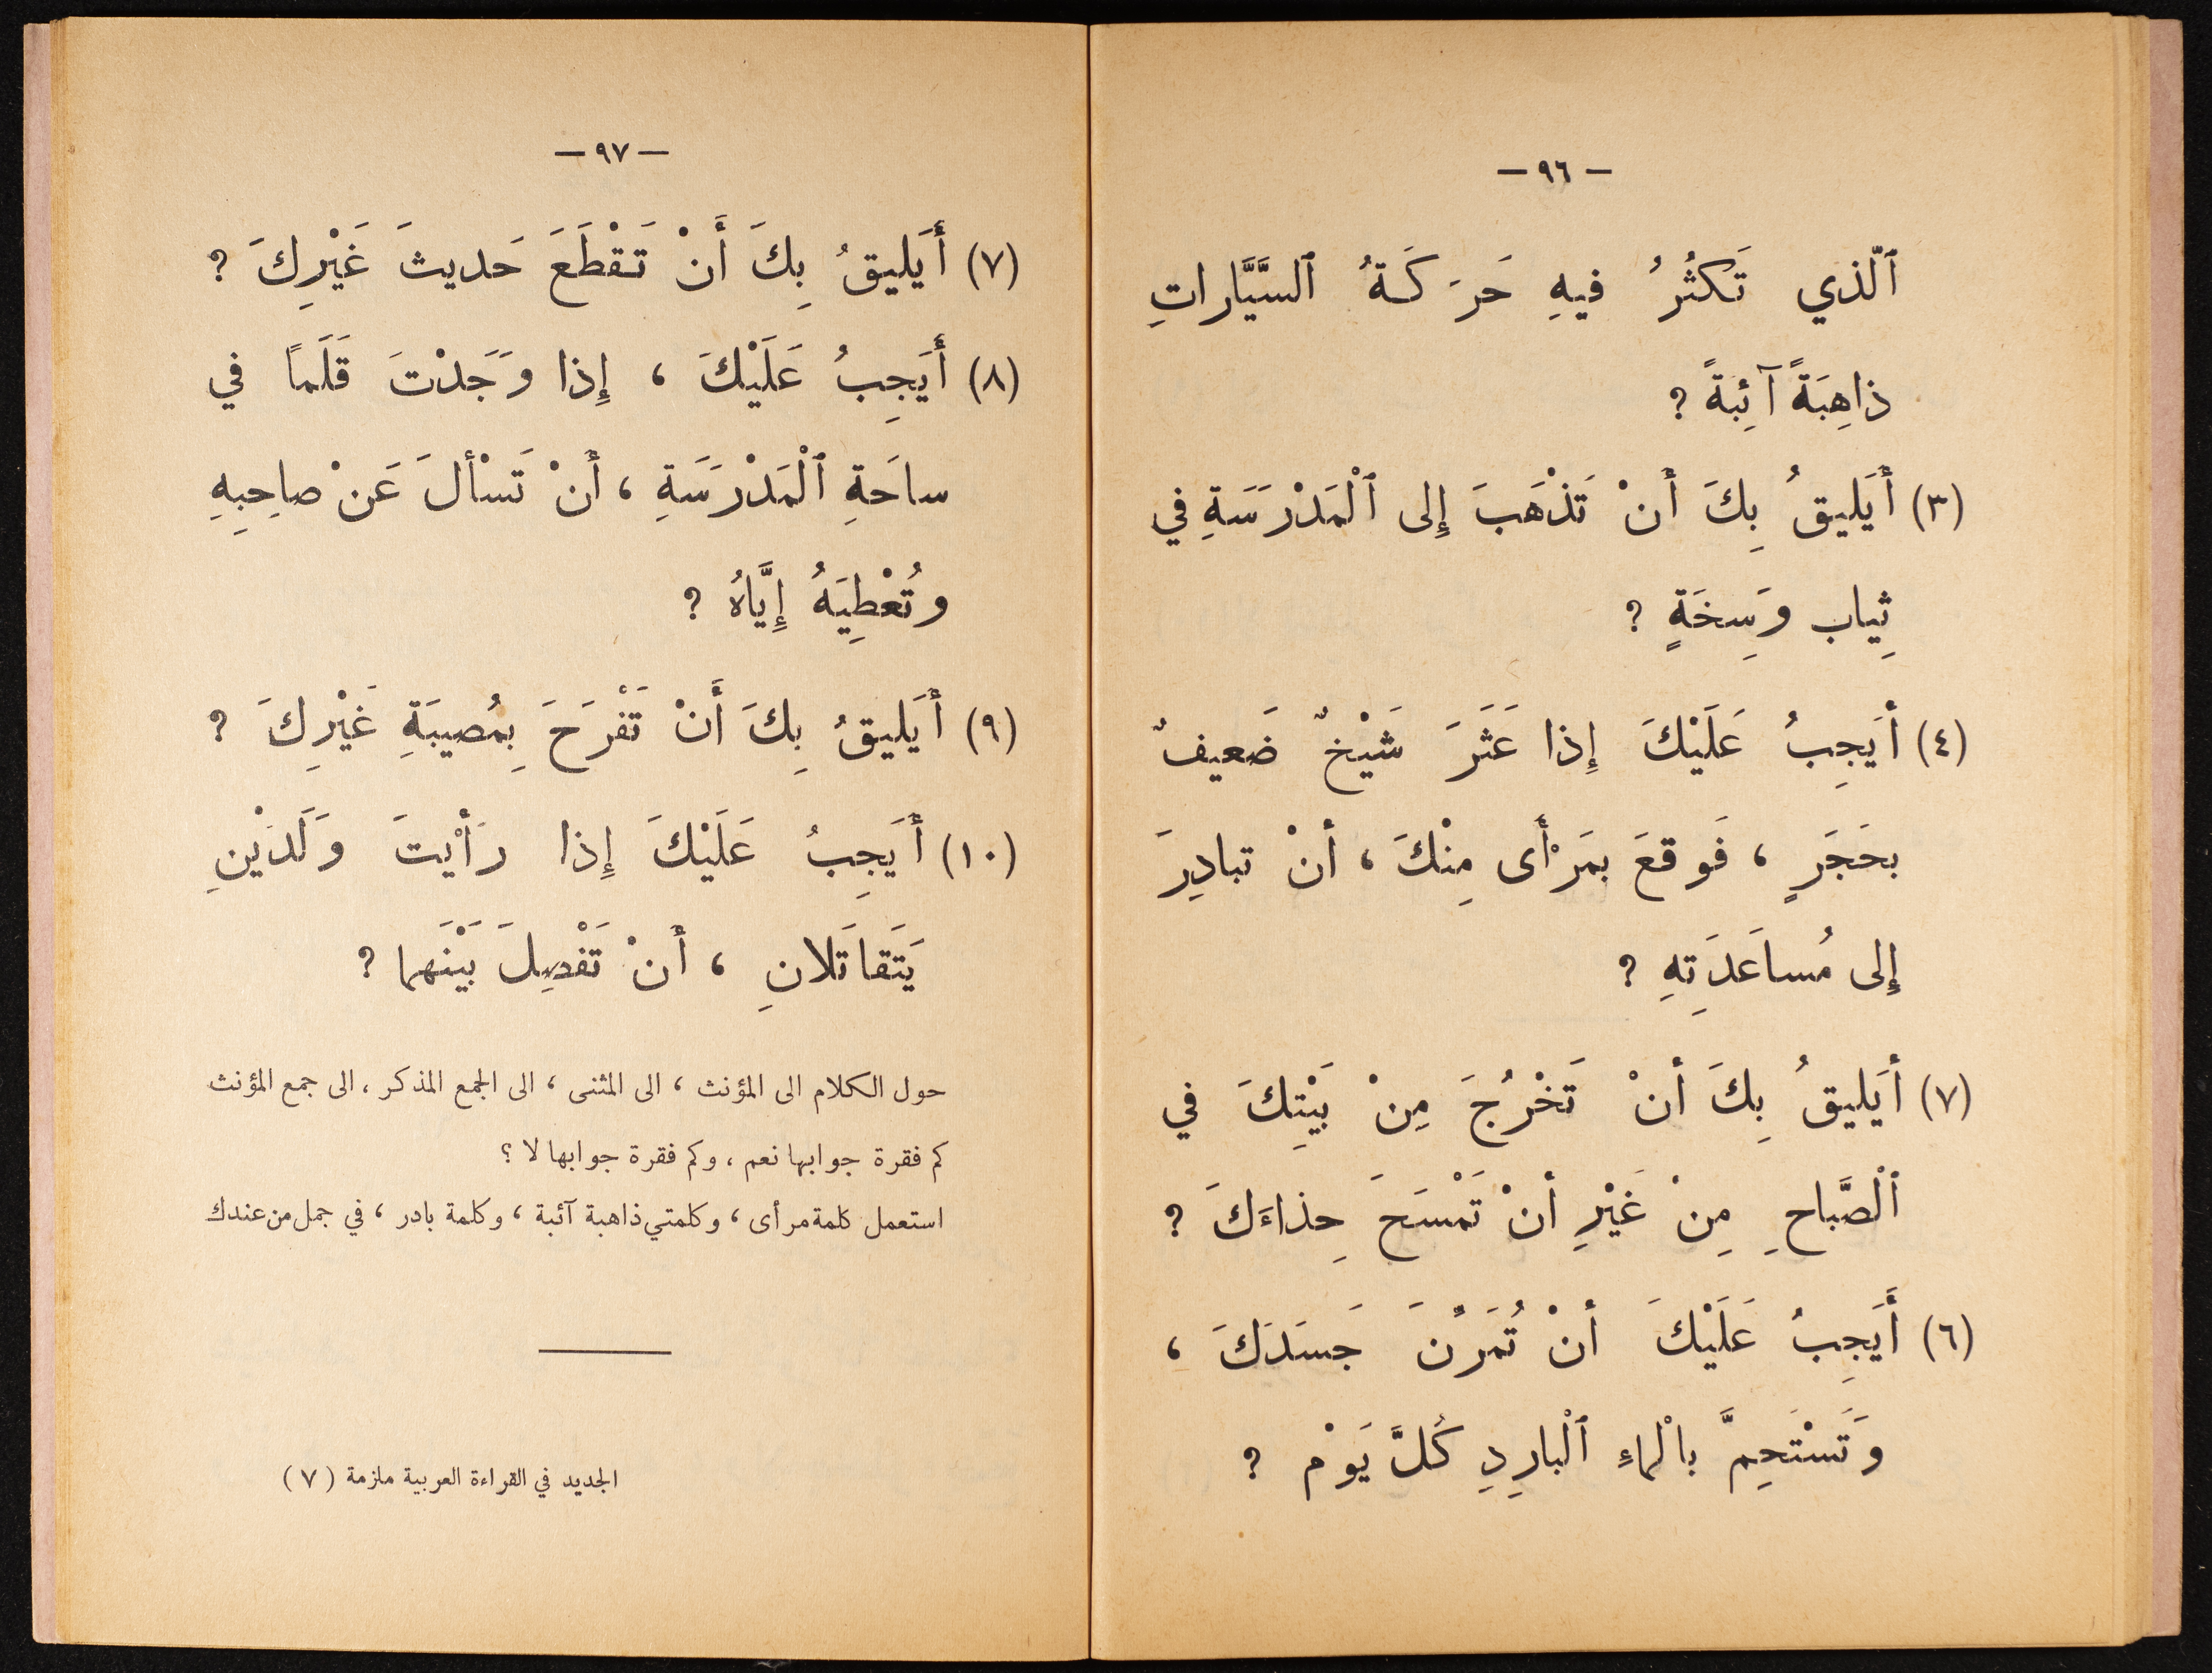 — ٩٦ —
ٱلَّذي تَكثُرُ فيهِ حَرَكَةُ ٱلسَّيَّاراتِ
ذاهِبَةً آئِبَةً ؟
(٣) أَيَليقُ بِكَ أَنْ تَذْهَبَ إِلى ٱلْمَدْرَسَةِ في
ثِياب وَسِخَةٍ ؟
(٤) أَيَجِبُ عَلَيْكَ إِذا عَثَرَ شَيْخٌ ضَعيفٌ
بحَجَرٍ ، فَوقعَ بمَرْأَى مِنْكَ ، أنْ تبادِرَ
إِلى مُساعَدَتِهِ ؟
(٧) أيَليقُ بِكَ أنْ تَخْرُجَ مِنْ بَيْتِكَ في
ٱلْصَّباحِ مِنْ غَيْرِ أنْ تَمْسَحَ حِذاءَكَ ؟
(٦) أَيَجِبُ عَلَيْكَ أنْ تُمَرِّنَ جَسَدَكَ ،
وَتَسْتَحِمَّ بالْماءِ ٱلْبارِدِ كُلَّ يَوْم ؟
— ٩٧ —
(٧) أَيَليقُ بِكَ أَنْ تَقْطَعَ حَديثَ غَيْرِكَ ؟
(٨) أَيَجِبُ عَلَيْكَ ، إِذا وَجَدْتَ قَلَماً في
ساحَةِ ٱلْمَدْرَسَةِ ، أَنْ تَسْألَ عَنْ صاحِبِهِ
وتُعْطِيَهُ إِيَّاهُ ؟
(٩) أَيَليقُ بِكَ أَنْ تَفْرَحَ بِمُصيبَةِ غَيْرِكَ ؟
(١٠) أَيَجِبُ عَلَيْكَ إِذا رَأَيْتَ وَلَدَيْنِ
يَتَقاتَلانِ ، أَنْ تَفْصِلَ بَيْنَهما ؟
حول الكلام الى المؤنث ، الى المثنى ، الى الجمع المذكر ، الى جمع المؤنث
كم فقرة جوابها نعم ، وكم فقرة جوابها لا ؟
استعمل كلمة مرأى ، وكلمتي ذاهبة آئبة ، وكلمة بادر ، في جمل من عندك
الجديد في القراءة العربية ملزمة ( ٧ )